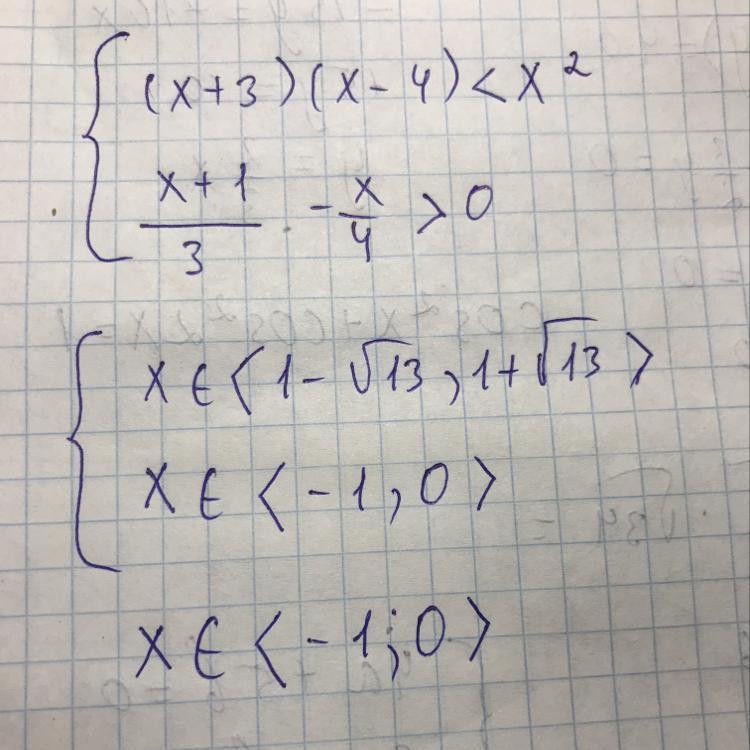 (x+3)(x-4)<x²
x+1/3 - x/4 > 0
x ∈ ⟨1-√13, 1+√13⟩
x ∈ ⟨-1, 0⟩
x ∈ ⟨-1; 0⟩